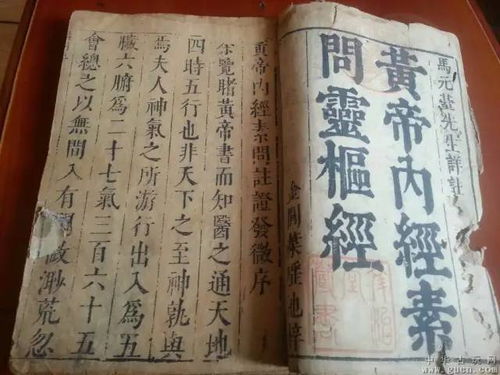 馬元臺先生詳註
黃帝內經素
問靈樞經
黃帝內經素問註證發微序
余覽睹黃帝書而知醫之通天地
四時五行也非天下之至神孰與
焉夫人神氣之所游行出入爲五
臟六腑爲二十七氣三百六十五
會總之以無間入有間故渺荒忽
中华古玩网
www.gucn.com